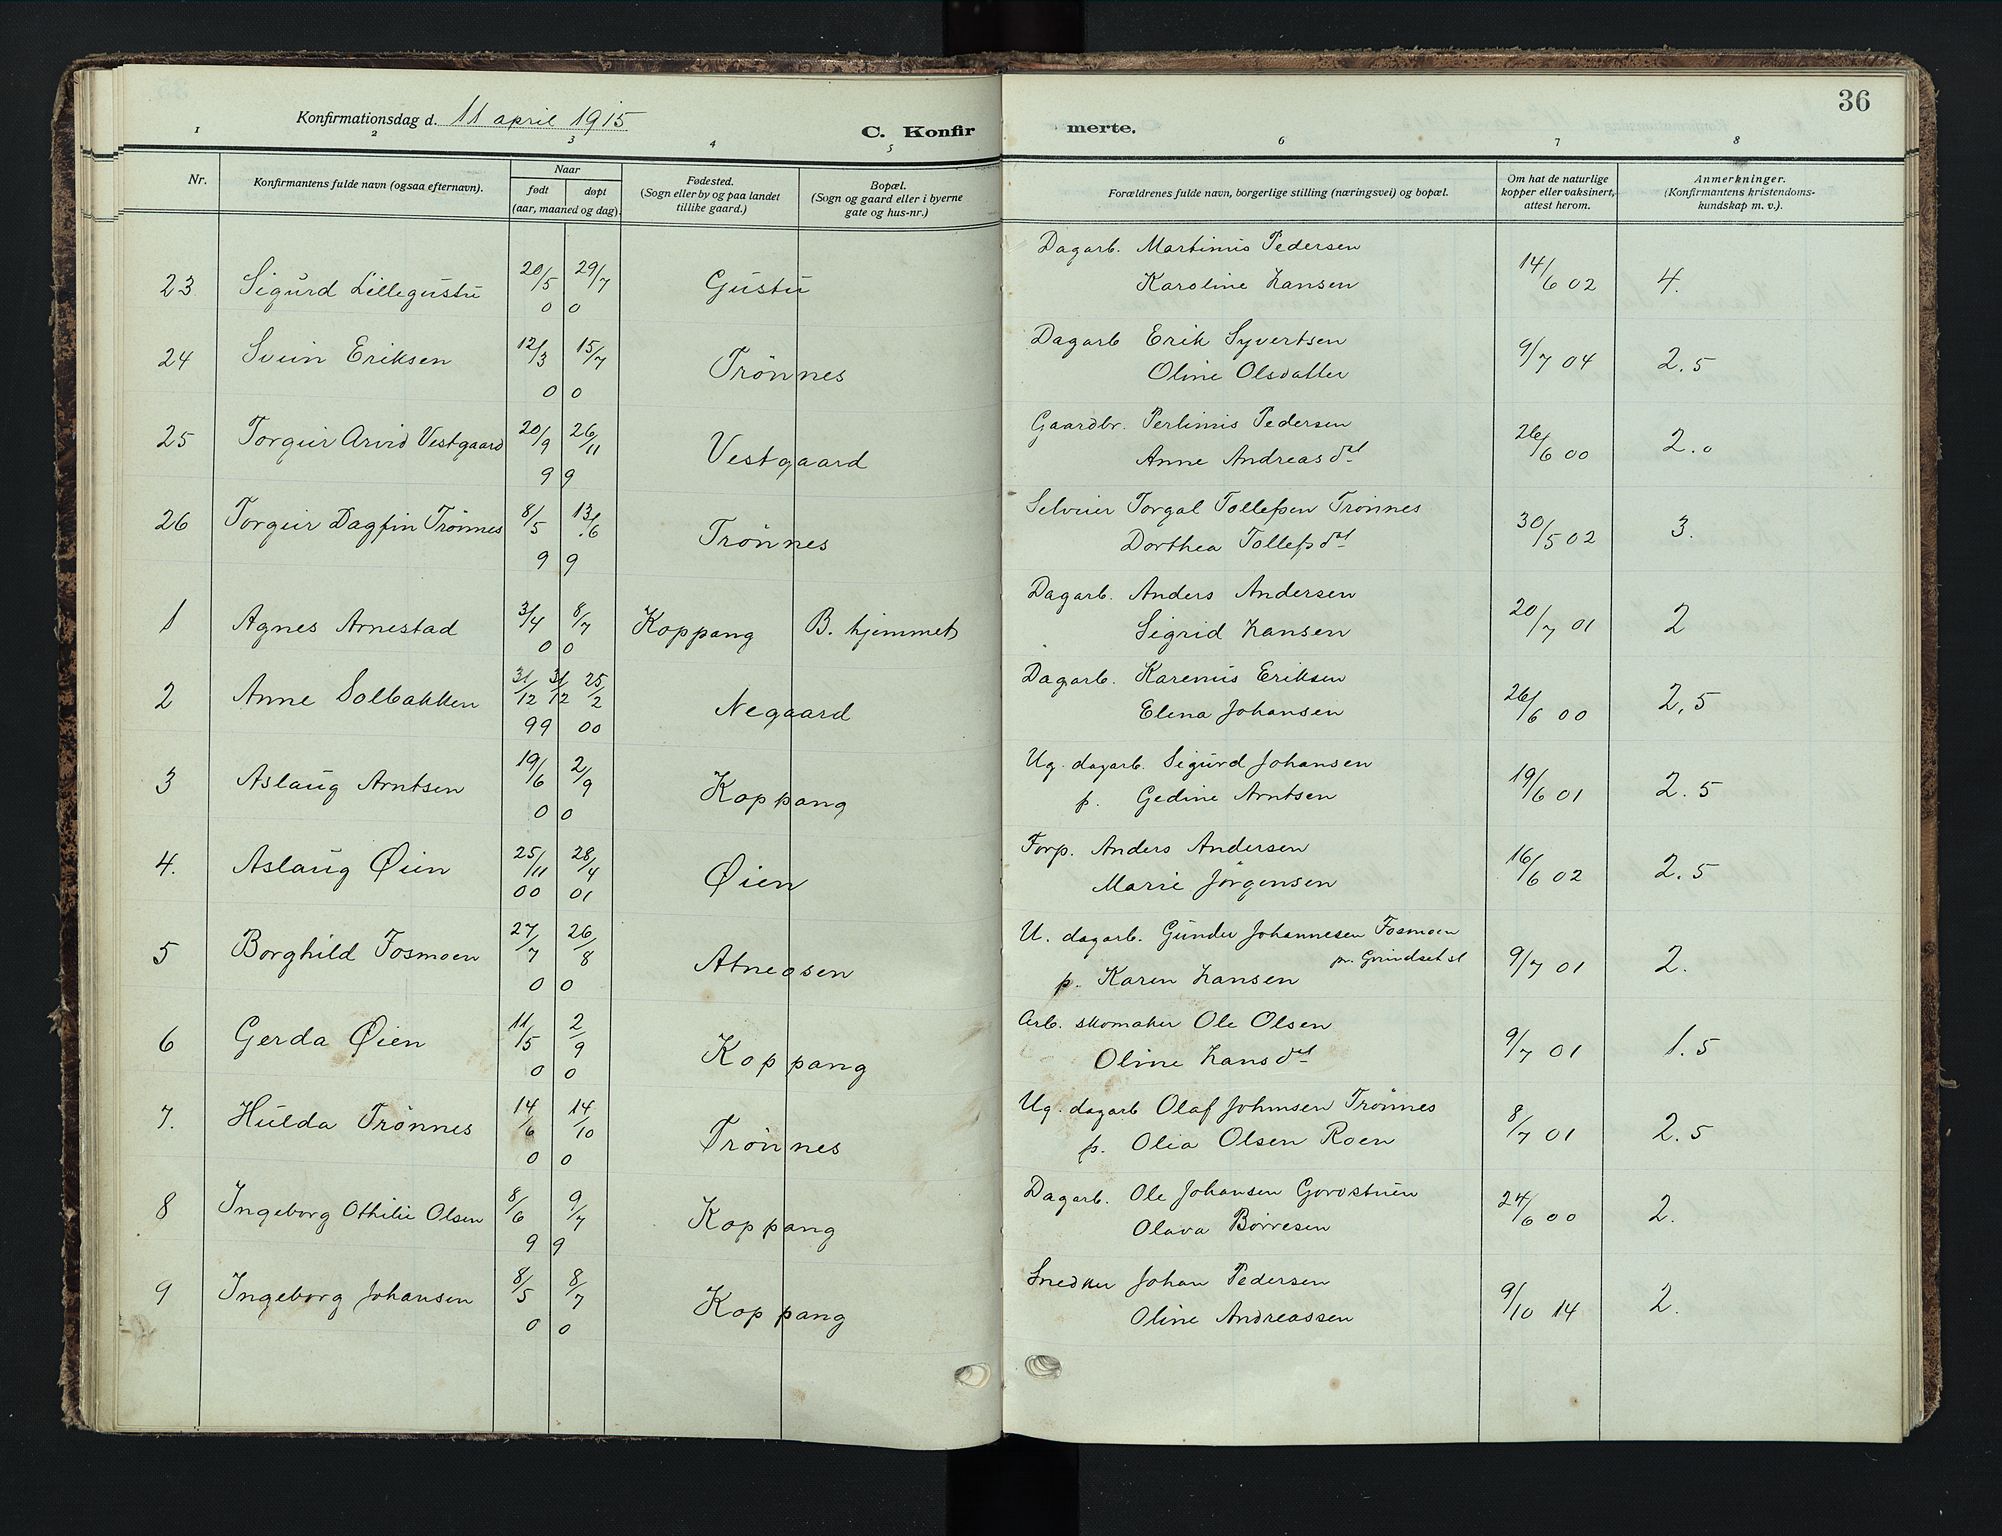 36
Konfirmationsdag d. 11 april 1915
C. Konfirmerte.
1 2 3 4 5 6 7 8
Nr. Konfirmantens fulde navn (ogsaa efternavn). Naar født døpt (aar, maaned og dag) Fødested. (Sogn eller by og paa landet tillike gaard.) Bopæl. (Sogn og gaard eller i byerne gate og hus-nr.) Forældrenes fulde navn, borgerlige stilling (næringsvei) og bopæl. Om hat de naturlige kopper eller vaksinert, attest herom. Anmerkninger. (Konfirmantens kristendoms-kundskap m. v.).
23 Sigurd Lillegustu 20/5 0 29/7 0 Gustu Dagarb. Martinius Pedersen 14/6 02 4.
Karoline Hansen
24 Svein Eriksen 12/3 0 15/7 0 Trönnes Dagarb Erik Syvertsen 9/7 04 2.5
Oline Olsdatter
25 Torgeir Arvid Vestgaard 20/9 9 26/11 9 Vestgaard Gaardbr. Pertinius Pedersen 26/6 00 2.0
Anne Andreasdat
26 Torgeir Dagfin Trönnes 8/5 9 13/6 9 Trönnes Selveier Torgal Tollefsen Trönnes 30/5 02 3.
Dorthea Tollefsdat
1 Agnes Arnestad 3/4 0 8/7 0 Koppang B. hjemmet Dagarb. Anders Andersen 20/7 01 2
Sigrid Hansen
2 Anne Solbakken 31/12 31/12 99 25/2 00 Negaard Dagarb. Karenius Eriksen 26/6 00 2,5
Elena Johansen
3 Aslaug Arntsen 19/6 0 2/9 0 Koppang Ug. dagarb. Sigurd Johansen 19/6 01 2.5
p. Gedine Arntsen
4. Aslaug Øien 25/11 00 28/4 01 Øien Forp. Anders Andersen 16/6 02 2.5
Marie Jörgensen
5 Borghild Fosmoen 27/7 0 26/8 0 Atneosen U. dagarb. Gunder Johannesen Fosmoen 9/7 01 2.
pr. Grindset st
p. Karen Hansen
6 Gerda Øien 11/5 0 2/9 0 Koppang Arb. skomaker Ole Olsen 9/7 01 1.5
Oline Hansdat
7. Hulda Trönnes 14/6 0 14/10 0 Trönnes Ug. dagarb Olaf Johnsen Trönnes 8/7 01 2.5
p. Olia Olsen Roen
8 Ingeborg Othilie Olsen 8/6 9 9/7 9 Koppang Dagarb. Ole Johansen Gordstuen 24/6 00 2.
Olava Börresen
9 Ingeborg Johansen 8/5 0 8/7 0 Koppang Snedker Johan Pedersen 9/10 14 2.
Oline Andreassen